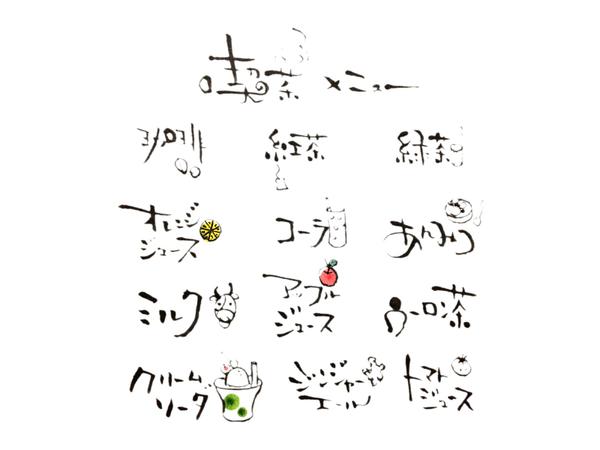 喫茶 メニュー
珈琲
紅茶
緑茶
オレンジ
ジュース
コーラ
あんみつ
ミルク
アップル
ジュース
ウーロン茶
クリーム
ソーダ
ジンジャー
エール
トマト
ジュース